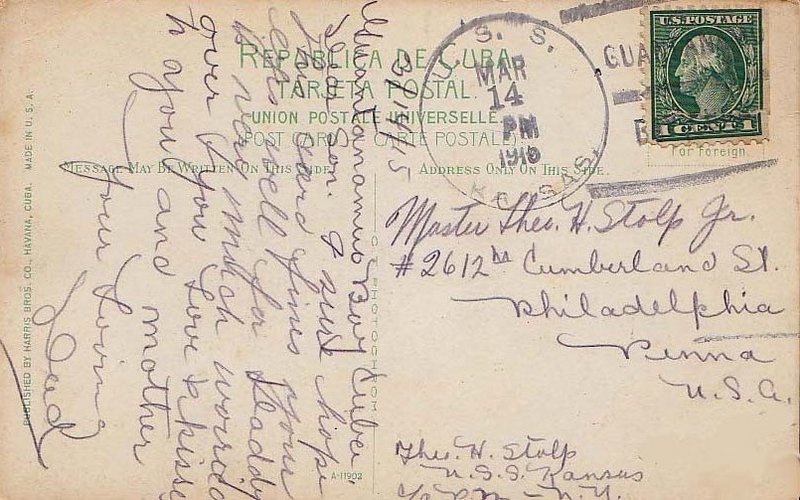 REPUBLICA DE CUBA.
TARJETA POSTAL.
UNION POSTALE UNIVERSELLE.
POST CARD. (CARTE POSTALE.)
MESSAGE MAY BE WRITTEN ON THIS SIDE.
ADDRESS ONLY ON THIS SIDE.
PUBLISHED BY HARRIS BROS. CO., HAVANA, CUBA. MADE IN U.S.A.
PHOTOCHROM
A-11902
U.S. POSTAGE
1 CENT 1
For Foreign
U. S. S.
MAR
14
PM
1915
KANSAS
3/14/15
Guantanamo Bay Cuba
Dear Son. I sure hope
your
as well for Daddy
is very much worried
over you Love & Kisses
to you and mother
Your loving
Dad
Master Theo. H. Stolp Jr.
#2612 Cumberland St.
Philadelphia
Penna
U.S.A.
Theo. H. Stolp
U.S.S. Kansas
N.Y.